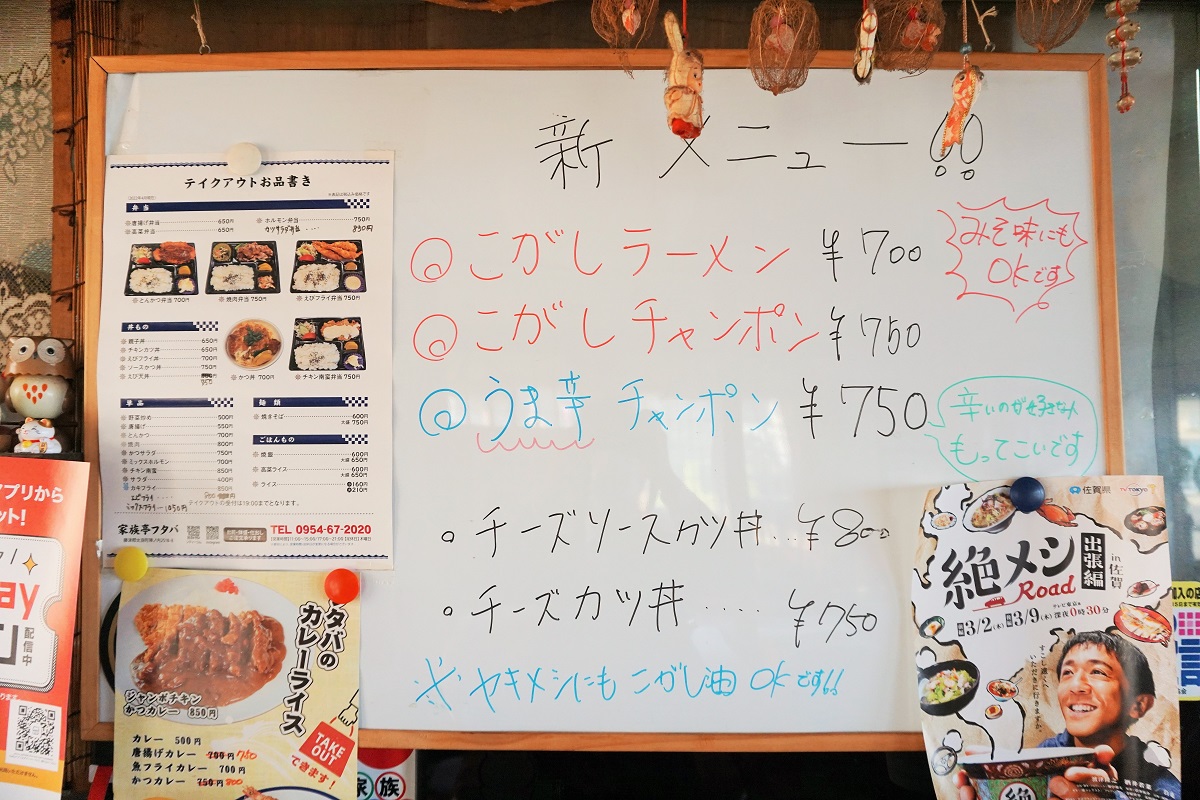 新メニュー!!
◎こがしラーメン ¥700
みそ味にも
OKです
◎こがしチャンポン ¥750
◎うま辛チャンポン ¥750
辛いのが好きな人
もってこいです
・チーズソースカツ丼…¥800
・チーズカツ丼…… ¥750
※ヤキメシにもこがし油OKです!!
テイクアウトお品書き
弁当
唐揚げ弁当 650円
高菜弁当 650円
ホルモン弁当 750円
カツサラダ弁当 850円
とんかつ弁当 700円
焼肉弁当 750円
えびフライ弁当 750円
丼もの
親子丼 650円
チキンカツ丼 650円
えびフライ丼 700円
ソースかつ丼 750円
えび天丼 850
かつ丼 700円
チキン南蛮弁当 750円
単品
野菜炒め 500円
唐揚げ 550円
とんかつ 700円
焼肉 800円
かつサラダ 750円
ミックスホルモン 700円
チキン南蛮 850円
サラダ 400円
カキフライ 850円
エビフライ
ミックスフライ…1050円
麺類
焼きそば 600円
大盛 750円
ごはんもの
焼飯 600円
大盛 650円
高菜ライス 600円
大盛 650円
ライス 小160円
大210円
テイクアウトの受付は19:00までとなります。
家族亭フタバ
TEL 0954-67-2020
フタバの
カレーライス
ジャンボチキン
かつカレー 850円
TAKE
OUT
できます!
カレー 500円
唐揚げカレー 700円 750
魚フライカレー 700円
かつカレー 750円 800
家族
アプリから
ット!
ay
配信中
佐賀県
TV TOKYO
絶メシ
Road
出張編
in 佐賀
テレビ東京系
3/2(木) 3/9(木) 深夜0時30分
すこし遠くへ
いただきに行きますか。
絶